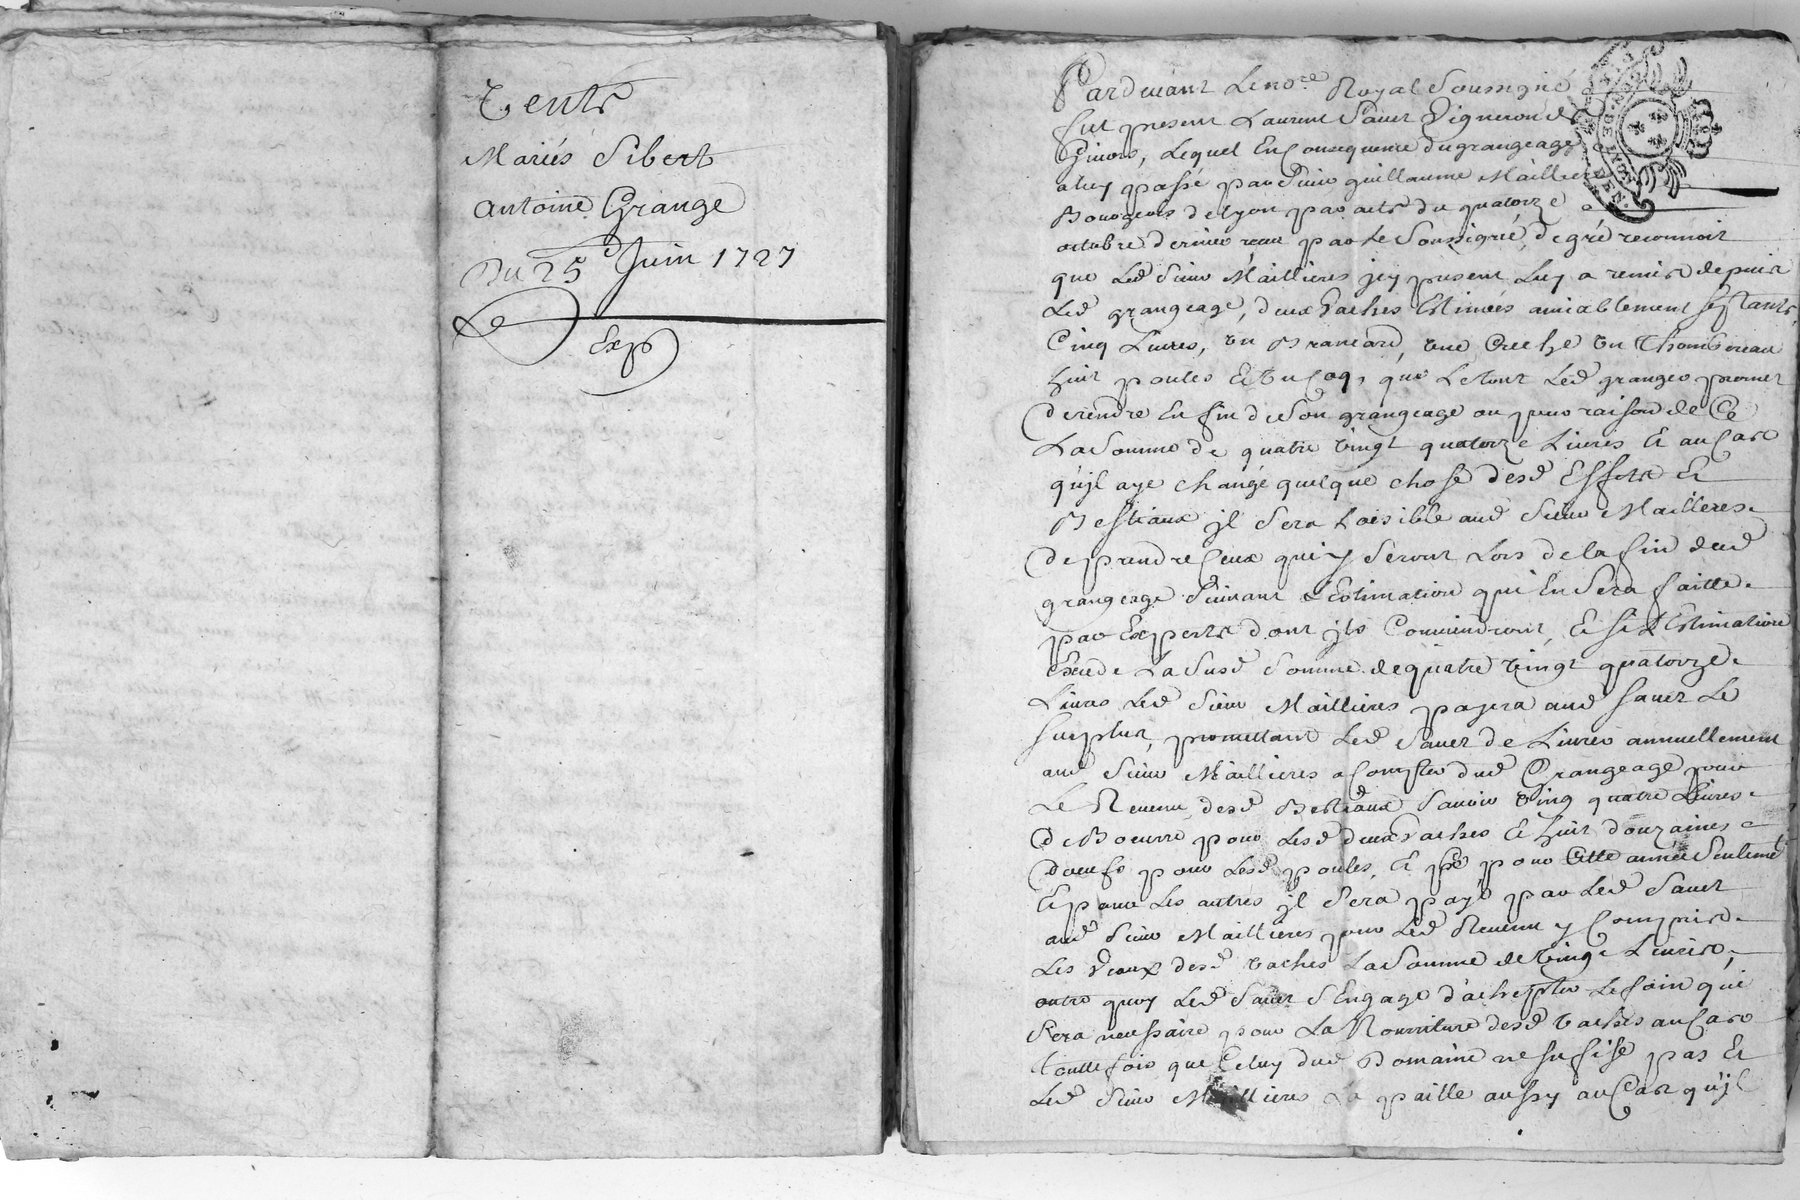 Vente
Mariés Sibert
Antoine Grange
Du 25e Juin 1727
Exp
Pardevant Le no.re Royal Soussigné
fut present Laurent Pavet Vigneron de
Givors, Lequel En Consequence du grangeage
a luy passé par Sieur guillaume Maillieres
Bourgeois de Lyon par acte du quatorze
octobre dernier reçu par Le Soussigné, de gré reconnoit
que Led Sieur Maillieres jcy present Luy a remis depuis
Led grangeage, deux Vaches Estimées amiablement septante
Cinq Livres, un Brancard, une Creche un Thombereau
huit poules Et un Coq, que Le tout Led granger promet
de rendre En fin de Son grangeage ou pour raison de Ce
La Somme de quatre vingt quatorze Livres Et au Cas
qu'jl aye changé quelque chose desd Effets Et
Bestiaux jl Sera Loisible aud Sieur Maillieres
de prendre Ceux qui y Seront Lors de la fin dud
grangeage Suivant L'Estimation qui En Sera faitte
par Experts dont jls Conviendront, Et Si L'Estimation
Excede La Susd Somme de quatre vingt quatorze
Livres Led Sieur Maillieres payera aud Pavet Le
Surplus, promettant Led Pavet de Livrer annuellement
aud Sieur Maillieres a Compter dud Grangeage pour
Le Revenu desd Bestiaux Savoir Ving quatre Livres
de Boeurre pour Lesd deux Vaches Et huit douzaines
d'oeufs pour Lesd poules, Et pour Cette année Seulemt
Et pour Les autres jl Sera payé par Led Pavet
aud Sieur Maillieres pour Led Revenu y Compris
Les Veaux desd Vaches La Somme de Vingt Livres,
outre quoy Led Pavet S'Engage d'achepter Le foin qui
Sera necessaire pour La Nourriture desd Vaches au Cas
touttefois que Celuy dud Domaine ne Sufise pas Et
Led Sieur Maillieres La paille aussy au Cas qu'jl